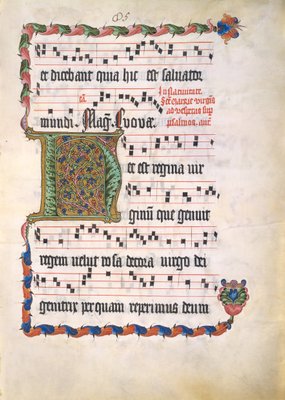 et dicebant quia hic est saluator
In natiuitate.
Scte marie virgis
ad vesperas sup
psalmos. ant
mundi. Mag. Euouae.
Hec est regina uir
ginum que genuit
regem uelut rosa decora uirgo dei
genitrix per quam reperimus deum